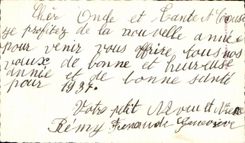 Chèr Oncle et Tante
je profitez de la nouvelle année
pour venir vous offrire tous nos
vœux de bonne et heureuse
année et de bonne santé
pour 1937.
Votre petit Neveu et Nièce
Rémy Fernande Geneviève